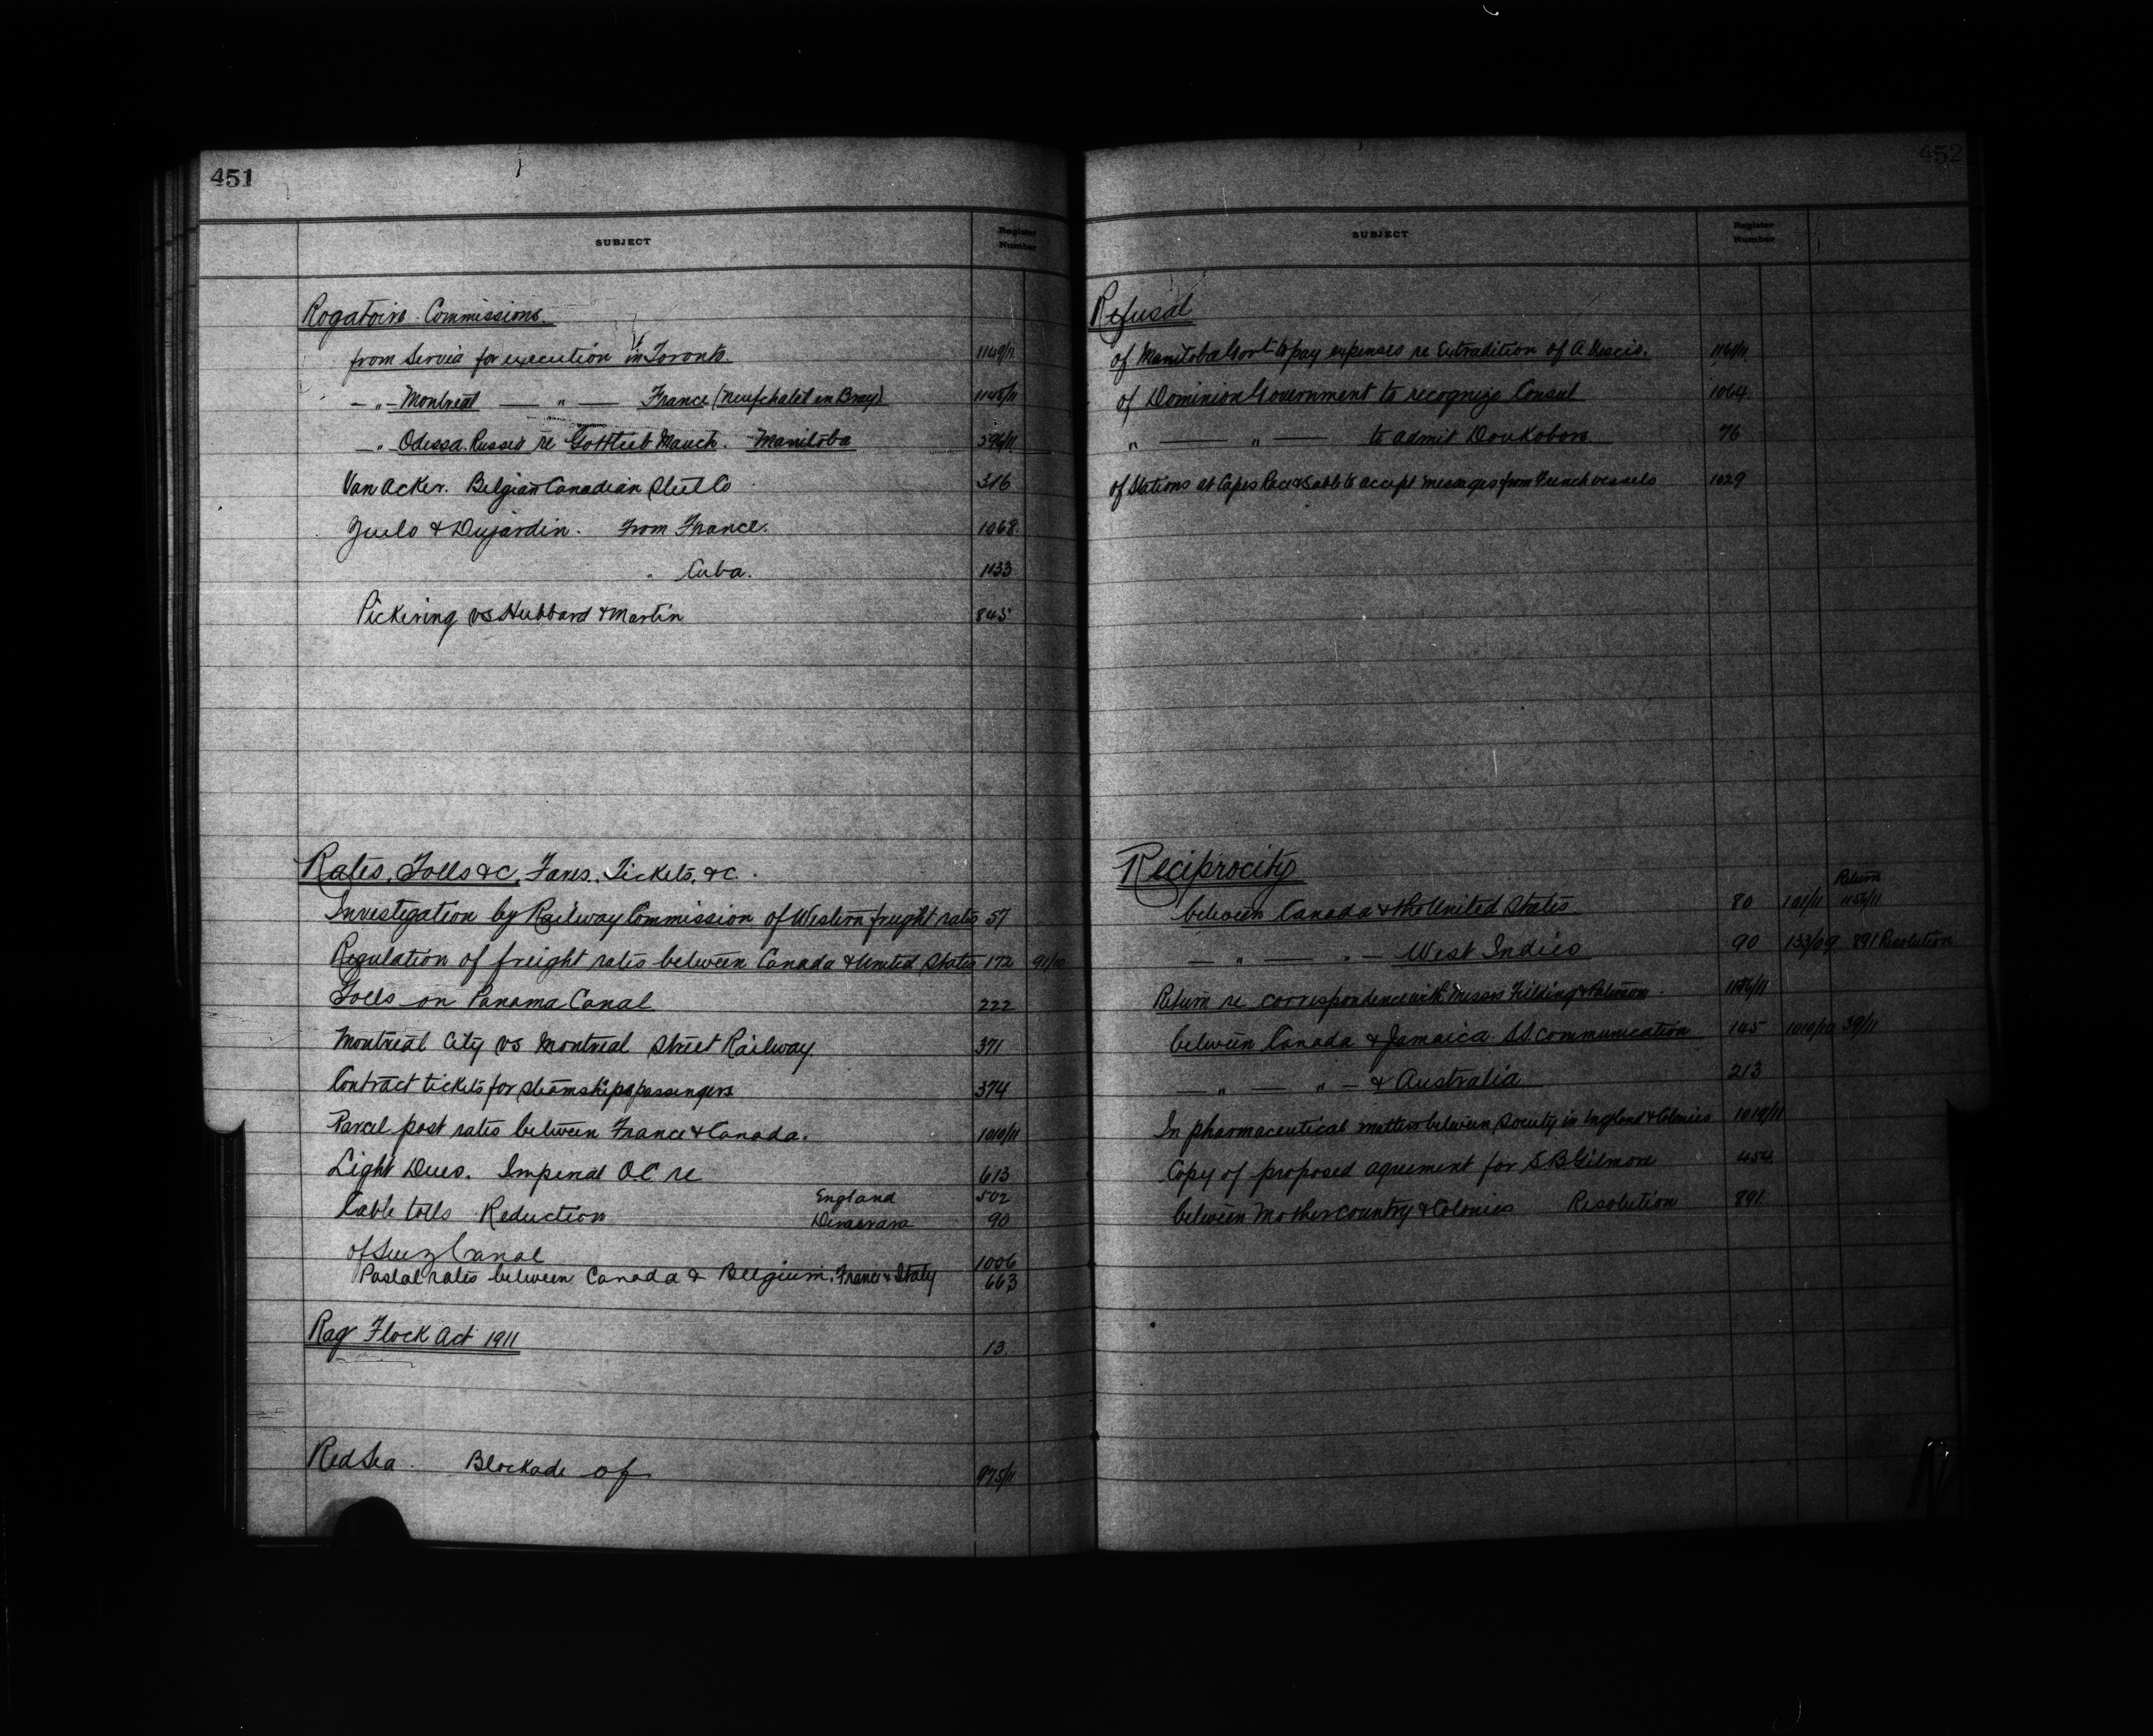 451
SUBJECT Register Number
Rogatoire Commissions.
from Servia for execution in Toronto. 1149/11
— " — Montreal — " — France (Neufchatel en Bray) 1145/11
— " Odessa. Russia re Gottlieb Mauch. Manitoba 396/11
Van Acker. Belgian Canadian Steel Co 316
& Dujardin. From France. 1068.
" Cuba. 1133
Pickering vs Hubbard & Martin 845
Rates, Tolls &c, Fares, Tickets, &c.
Investigation by Railway Commission of Western freight rates 57
Regulation of freight rates between Canada & United States 172 91/10
Tolls on Panama Canal 222
Montreal City vs Montreal Street Railway. 371
Contract tickets for steamships passengers 374
Parcel post rates between France & Canada. 1010/11
Light Dues. Imperial OC re 613
Cable tolls Reduction England 502
Demerara 90
of Suez Canal 1006
Postal rates between Canada & Belgium, France & Italy 663
Rag Flock Act 1911 13.
Red Sea. Blockade of 975/11
452
SUBJECT Register Number
Refusal
of Manitoba Govt to pay expenses re Extradition of A. 1161/11
of Dominion Government to recognize Consul 1064.
" — " to admit Doukobors 76
of Stations at Capes Race & Sable to accept messages from French vessels 1029
Reciprocity
between Canada & the United States 80 101/11 Return 1156/11
— " — " — West Indies 90 133/09 891 Resolution
Return re correspondence with Messrs Fielding & Paterson. 1156/11
between Canada & Jamaica. S.S. Communication 145 1010/10 39/11
— " — " — & Australia 213
In pharmaceutical matters between Society in England & Colonies 1019/11
Copy of proposed agreement for S B Gilmore 454.
between Mother Country & Colonies Resolution 891.